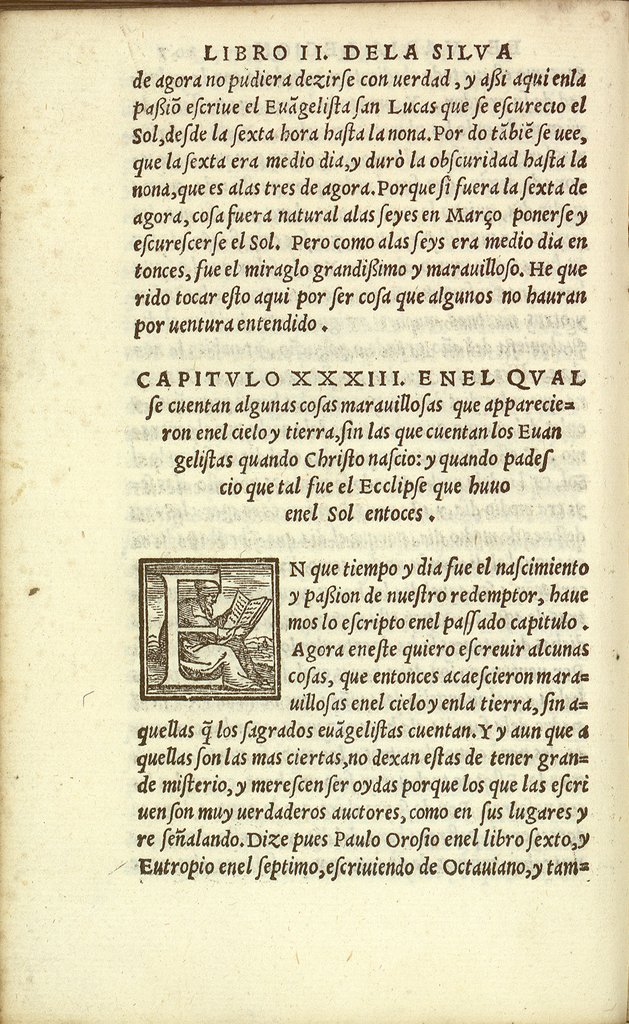 LIBRO II. DELA SILVA
de agora no pudiera dezirſe con uerdad, y aßi aqui enla
paßiõ eſcriue el Euãgeliſta ſan Lucas que ſe eſcurecio el
Sol, deſde la ſexta hora haſta la nona. Por do tãbiẽ ſe uee,
que la ſexta era medio dia, y durò la obſcuridad haſta la
nona, que es alas tres de agora. Porque ſi fuera la ſexta de
agora, coſa fuera natural alas ſeyes en Março ponerſe y
eſcureſcerſe el Sol. Pero como alas ſeys era medio dia en
tonces, fue el miraglo grandißimo y marauilloſo. He que
rido tocar eſto aqui por ſer coſa que algunos no hauran
por uentura entendido.
CAPITVLO XXXIII. ENEL QVAL
ſe cuentan algunas coſas marauilloſas que apparecie=
ron enel cielo y tierra, ſin las que cuentan los Euan
geliſtas quando Chriſto naſcio: y quando padeſ
cio que tal fue el Ecclipſe que huuo
enel Sol entoces.
EN que tiempo y dia fue el naſcimiento
y paßion de nueſtro redemptor, haue
mos lo eſcripto enel paſſado capitulo.
Agora eneſte quiero eſcreuir alcunas
coſas, que entonces acaeſcieron mara=
uilloſas enel cielo y enla tierra, ſin a=
quellas q̃ los ſagrados euãgeliſtas cuentan. Y y aun que a
quellas ſon las mas ciertas, no dexan eſtas de tener gran=
de miſterio, y mereſcen ſer oydas porque los que las eſcri
uen ſon muy uerdaderos auctores, como en ſus lugares y
re ſeñalando. Dize pues Paulo Oroſio enel libro ſexto, y
Eutropio enel ſeptimo, eſcriuiendo de Octauiano, y tam=